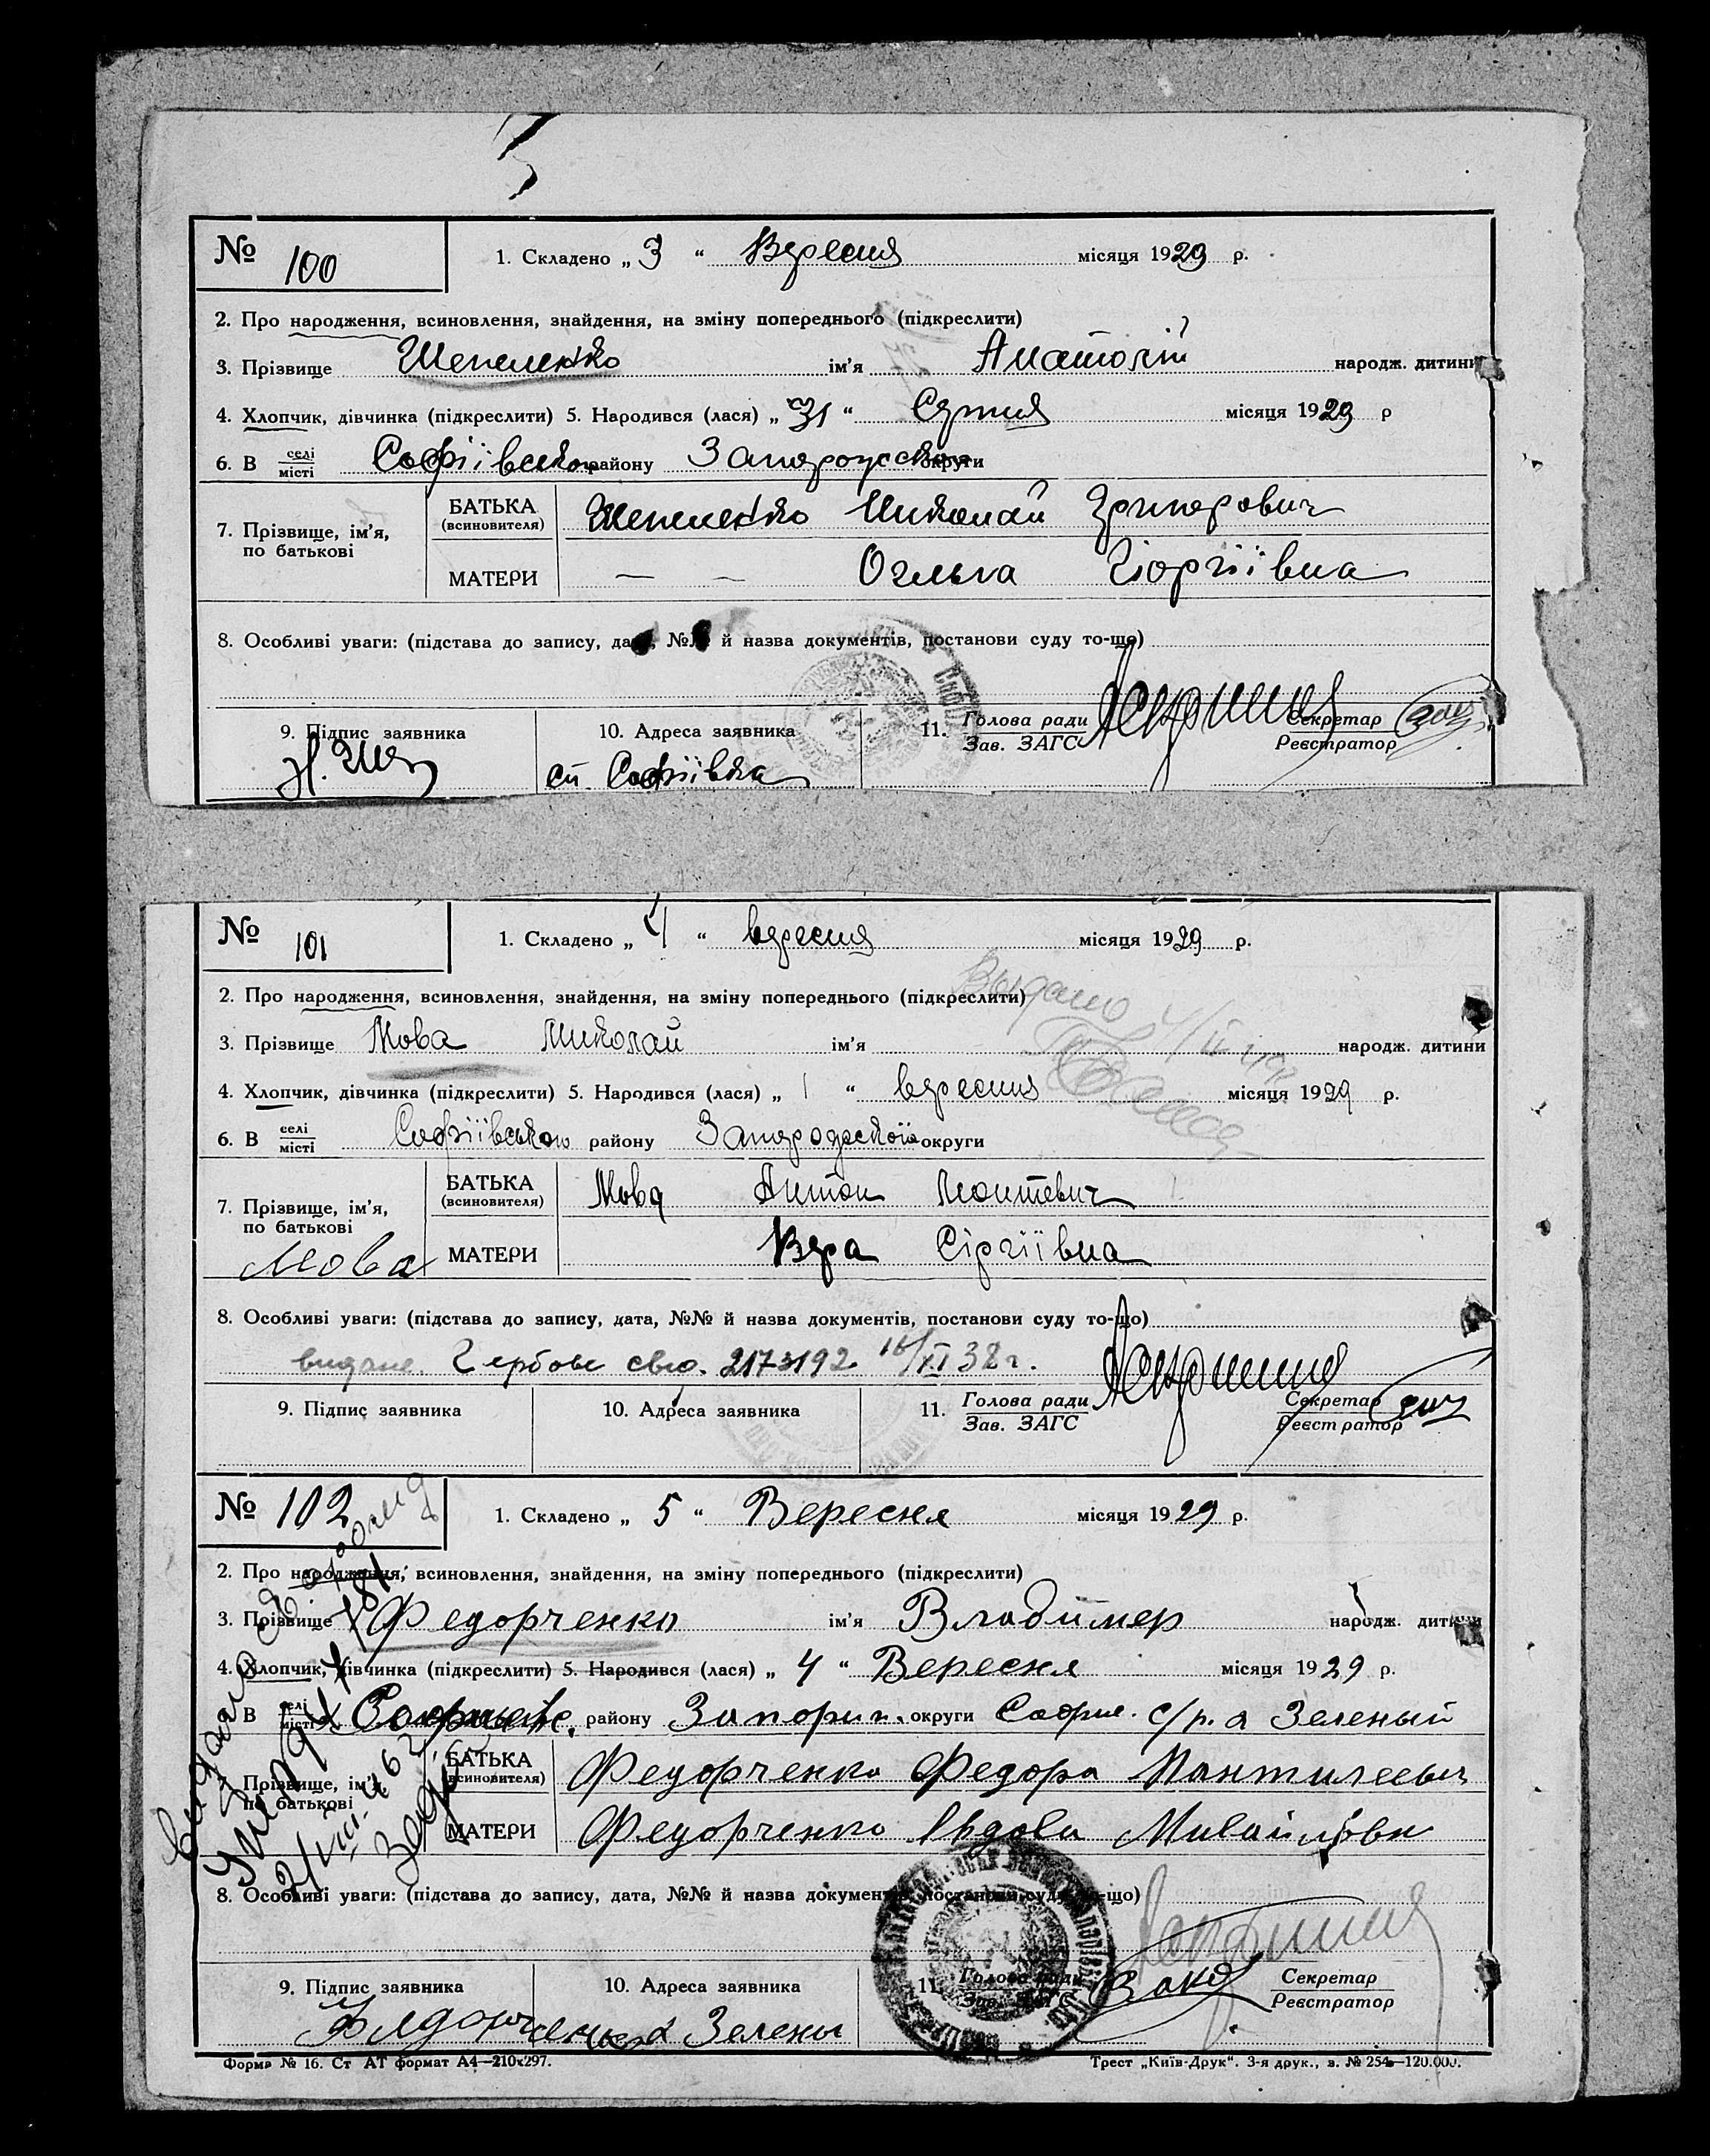 № 100 1. Складено „ 3 “ Вересня місяця 1929 р.
2. Про народження, всиновлення, знайдення, на зміну попереднього (підкреслити)
3. Прізвище Шепеленко ім'я Анатолій народж. дитини
4. Хлопчик, дівчинка (підкреслити) 5. Народився (лася) „ 31 “ Серпня місяця 1929 р
6. В селі місті Софіївського району Запорожської округи
7. Прізвище, ім'я, по батькові
БАТЬКА (всиновителя) Шепеленко Николай Григорович
МАТЕРИ — — Ольга Гіоргіївна
8. Особливі уваги: (підстава до запису, дата, №№ й назва документів, постанови суду то-що)
9. Підпис заявника 10. Адреса заявника 11. Голова ради Зав. ЗАГС Секретар Реєстратор
Н. Шеп с. Софіївка
№ 101 1. Складено „ 4 “ вересня місяця 1929 р.
2. Про народження, всиновлення, знайдення, на зміну попереднього (підкреслити)
Выдано
3. Прізвище Мова Николай ім'я народж. дитини
4. Хлопчик, дівчинка (підкреслити) 5. Народився (лася) „ 1 “ вересня місяця 1929 р.
6. В селі місті Софіївського району Запорожської округи
7. Прізвище, ім'я, по батькові
БАТЬКА (всиновителя) Мова Антон Леонтевич
Мова МАТЕРИ Вера Сіргіївна
8. Особливі уваги: (підстава до запису, дата, №№ й назва документів, постанови суду то-що)
видане. Гербове свід. 2173192 16/XI 38 г.
9. Підпис заявника 10. Адреса заявника 11. Голова ради Зав. ЗАГС Секретар Реєстратор
№ 102 1. Складено „ 5 “ Вересня місяця 1929 р.
2. Про народження, всиновлення, знайдення, на зміну попереднього (підкреслити)
3. Прізвище Федорченко ім'я Владимер народж. дитини
4. Хлопчик, дівчинка (підкреслити) 5. Народився (лася) „ 4 “ Вересня місяця 1929 р.
В селі місті Софиевс. району Запориж. округи Софие. с/р. х Зеленый
Прізвище, ім'я, по батькові
БАТЬКА (всиновителя) Федорченко Федора Пантилеевич
МАТЕРИ Федорченко Авдовя Михайловн
8. Особливі уваги: (підстава до запису, дата, №№ й назва документів, постанови суду то-що)
9. Підпис заявника 10. Адреса заявника 11. Голова ради Зав. ЗАГС Секретар Реєстратор
Федорченко х Зелены
Форма № 16. Ст АТ формат А4—210х297. Трест „Київ-Друк“. 3-я друк., з. № 254—120.000.